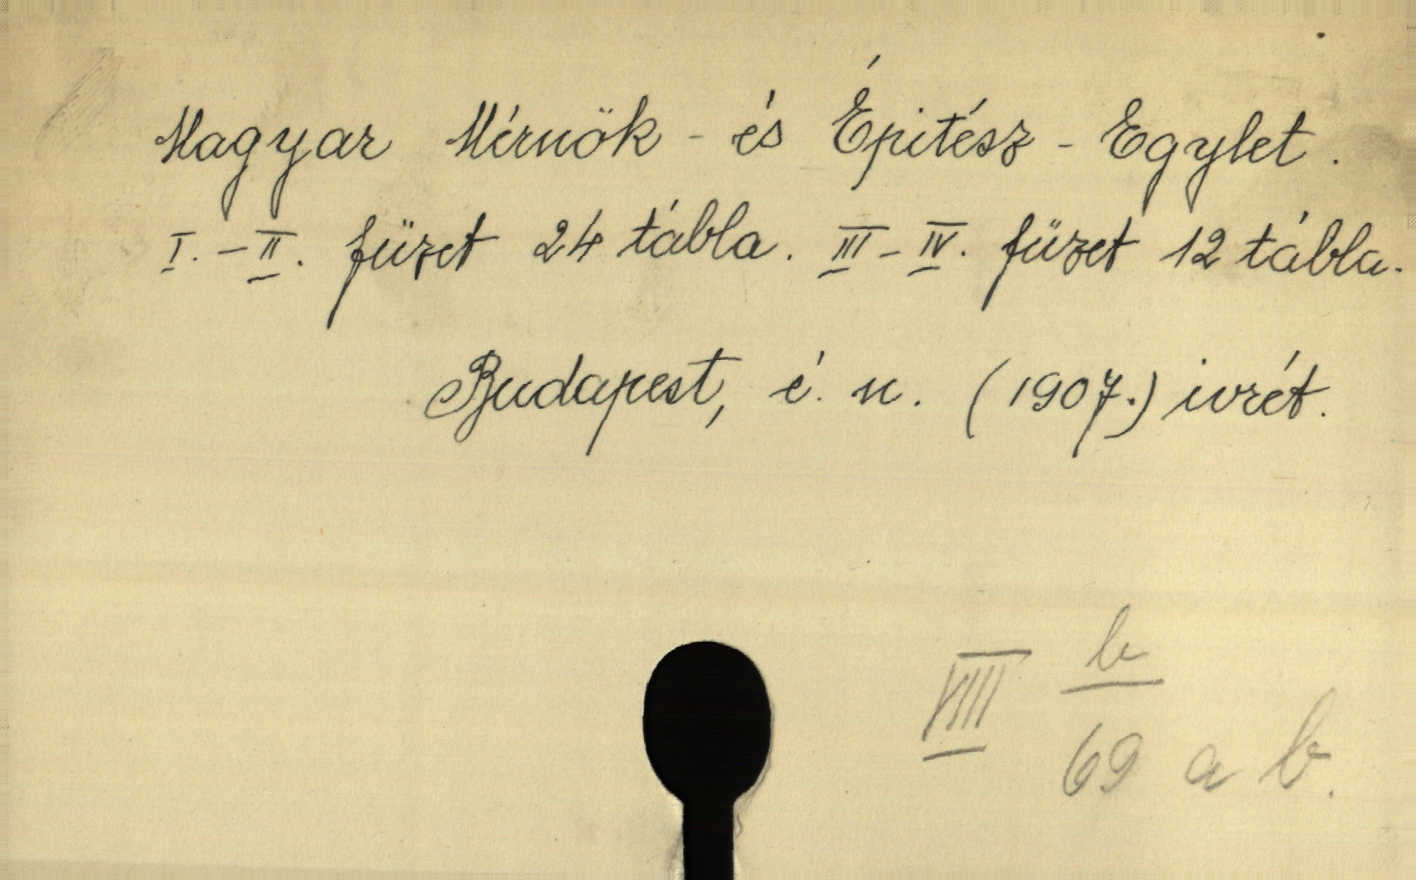 Magyar Mérnök - és Épitész - Egylet.
I. - II. füzet 24 tábla. III - IV. füzet 12 tábla.
Budapest, é. n. (1907.) ivrét.
VIII b/69 a b.